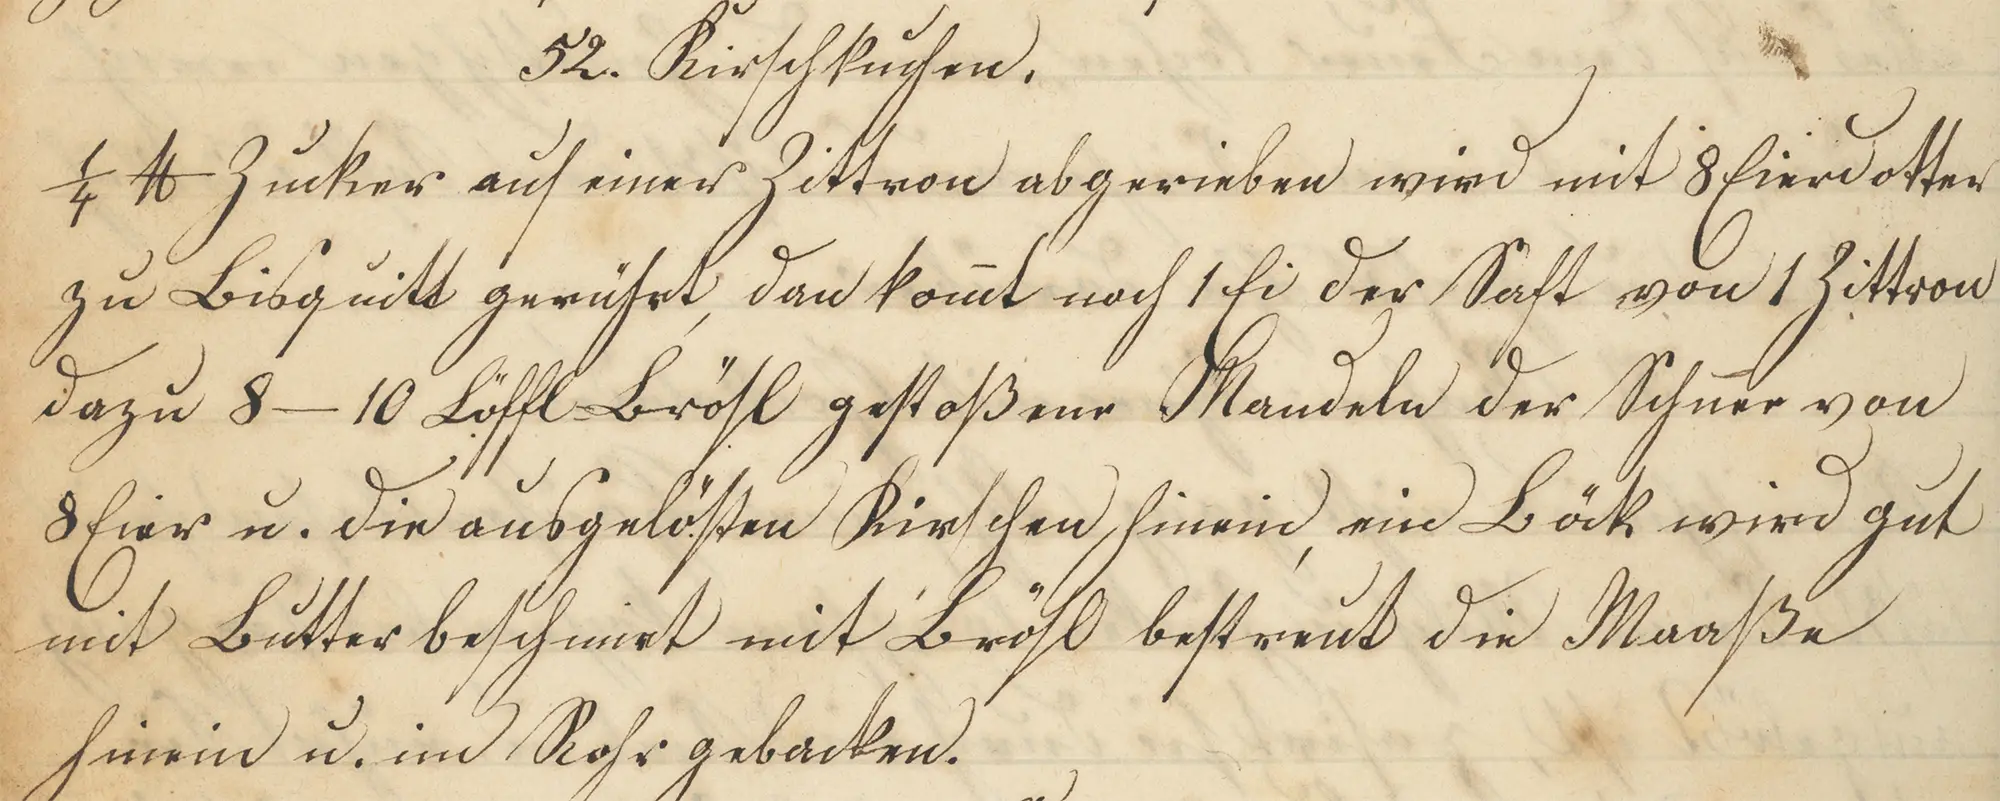 52. Kirschkuchen.
¼ ℔ Zucker auf einer Zittron abgerieben wird mit 8 Eierdotter
zu Bisquitt gerührt, dan kom̅t noch 1 Ei der Saft von 1 Zittron
dazu 8 — 10 Löffl Brösl gestoßene Mandeln der Schnee von
8 Eier u. die ausgelösten Kirschen hinein, ein Böck wird gut
mit Butter beschmirt mit Brösl bestreut die Maaße
hinein u. im Rohr gebacken.